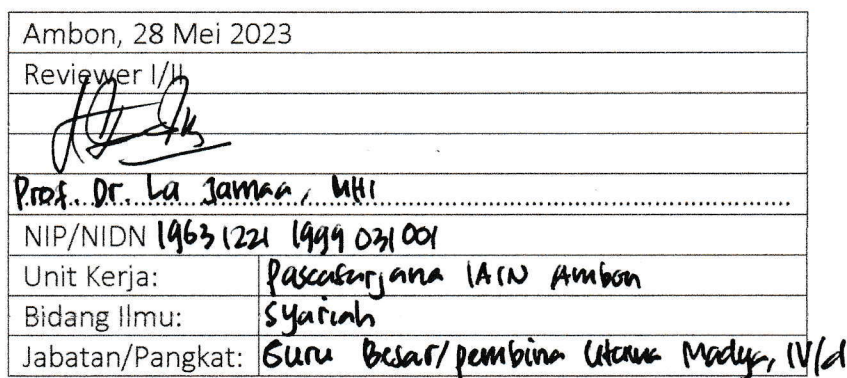 Ambon, 28 Mei 2023
Reviewer I/II
Prof. Dr. La Jamaa, MHI
NIP/NIDN 19631221 1999 031 001
Unit Kerja: Pascasarjana IAIN Ambon
Bidang Ilmu: Syariah
Jabatan/Pangkat: Guru Besar/pembina Utama Madya, IV/d